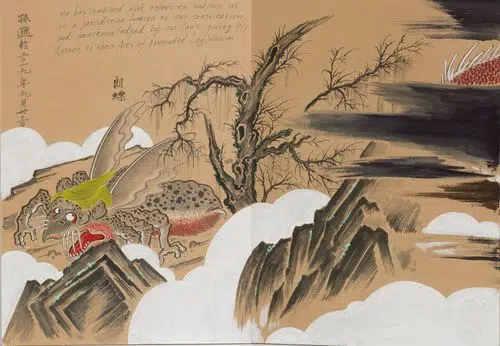 He has combined with others to subject us
to a jurisdiction foreign to our constitution
and unacknowledged by our laws giving his
Assent to their Acts of Pretended Legislation
孫遜於二〇一九年九月廿
朗螺